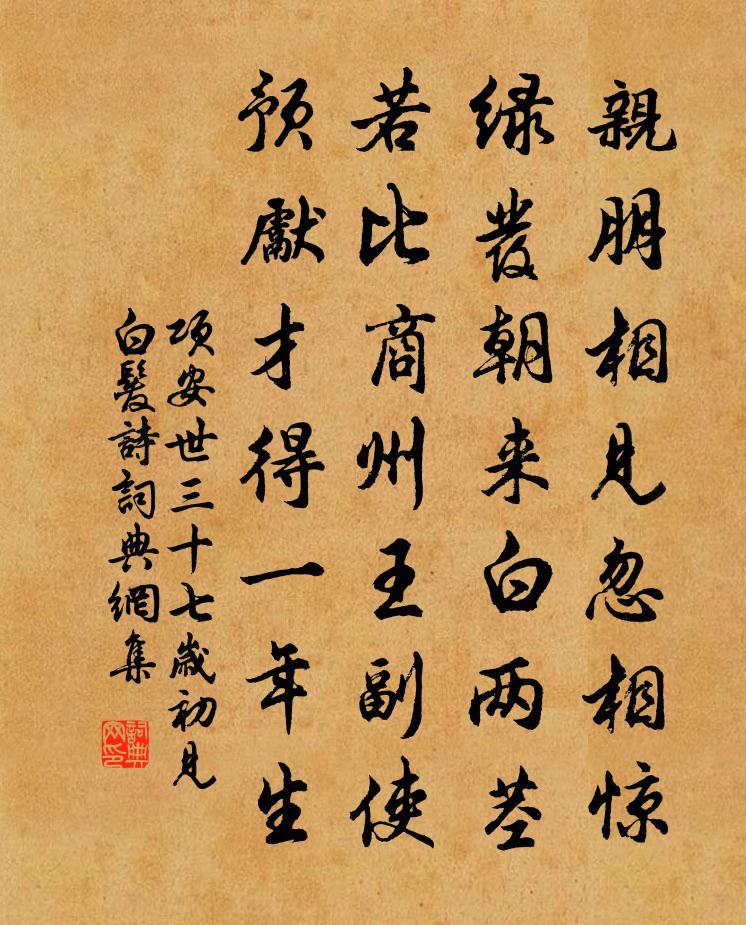 親朋相見忽相惊
緑發朝来白两茎
若比商州王副使
預獻才得一年生
項安世三十七歲初見
白髮詩詞典網集
詞典网印